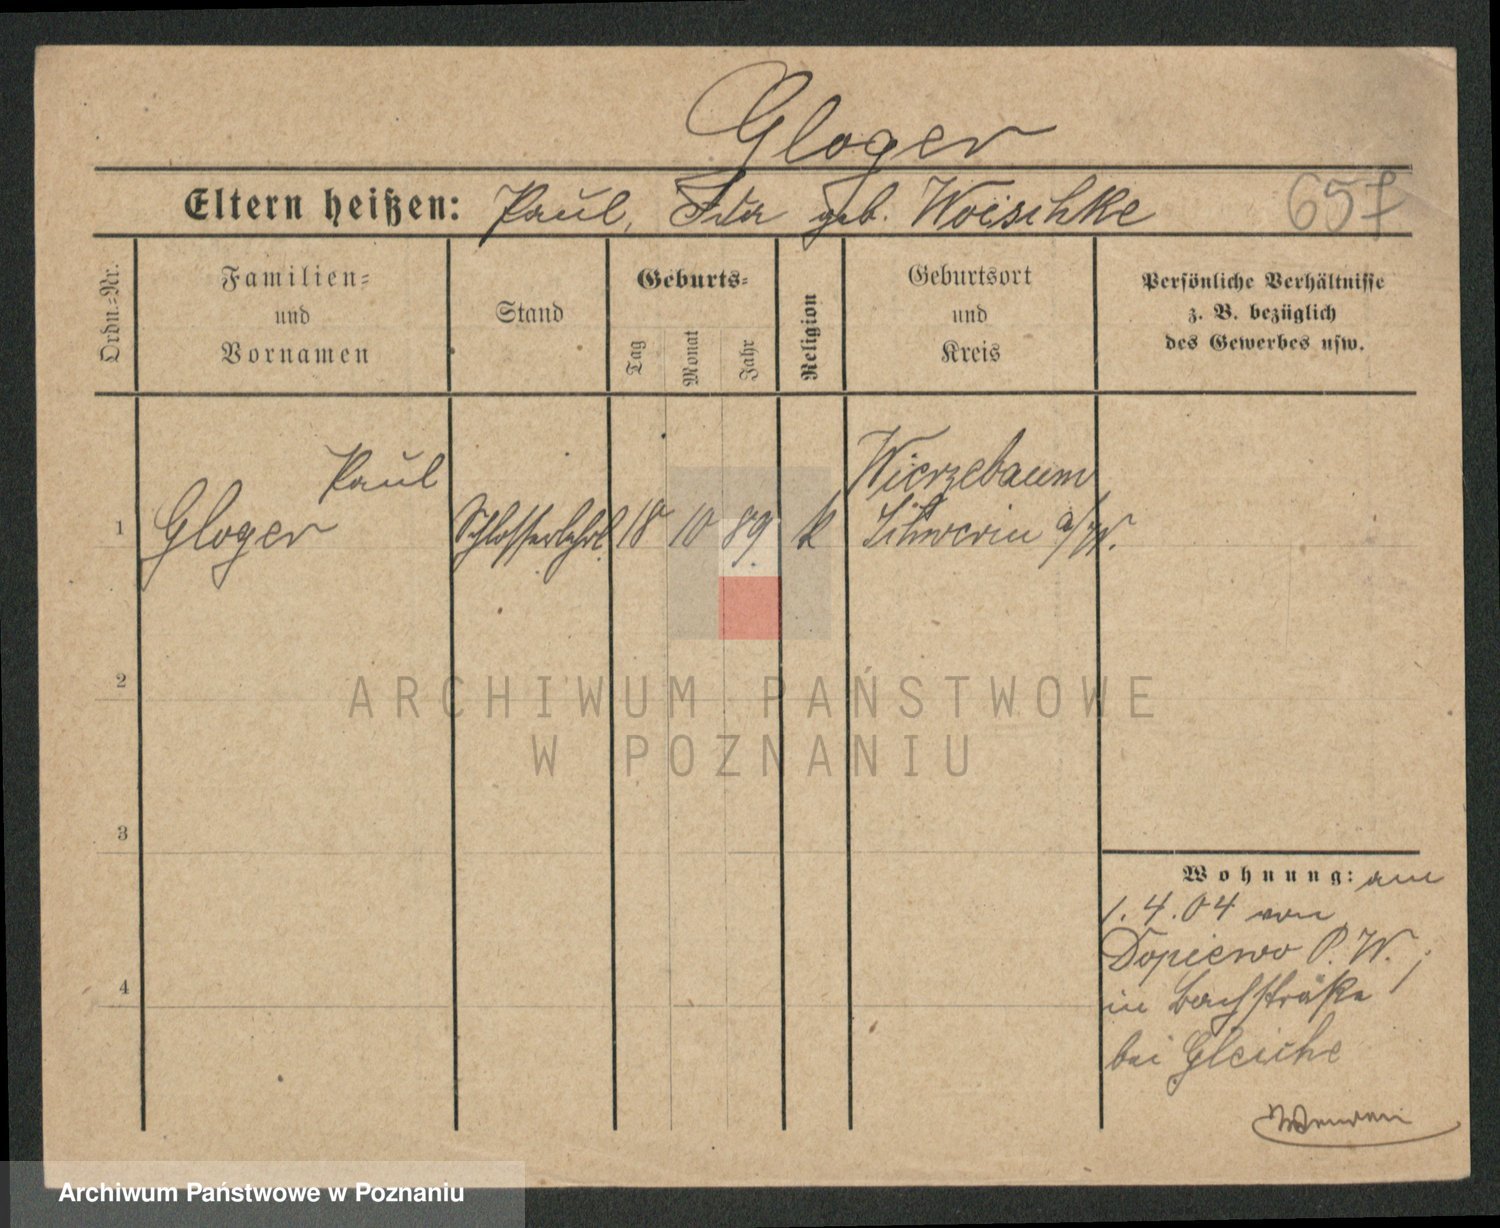 Gloger
Eltern heißen: Paul, Ida geb. Woischke
657
Ordn.=Nr.
Familien=
und
Vornamen
Stand
Geburts=
Tag
Monat
Jahr
Religion
Geburtsort
und
Kreis
Persönliche Verhältnisse
z. B. bezüglich
des Gewerbes usw.
1
Gloger Paul
Schlosserlehrl.
18
10
89.
k
Wierzebaum
Schwerin a/W.
2
3
4
Wohnung: am
1.4.04 von
Dopiewo P. W.
in Bachstraße 1
bei Gleiche
ARCHIWUM PAŃSTWOWE
W POZNANIU
Archiwum Państwowe w Poznaniu